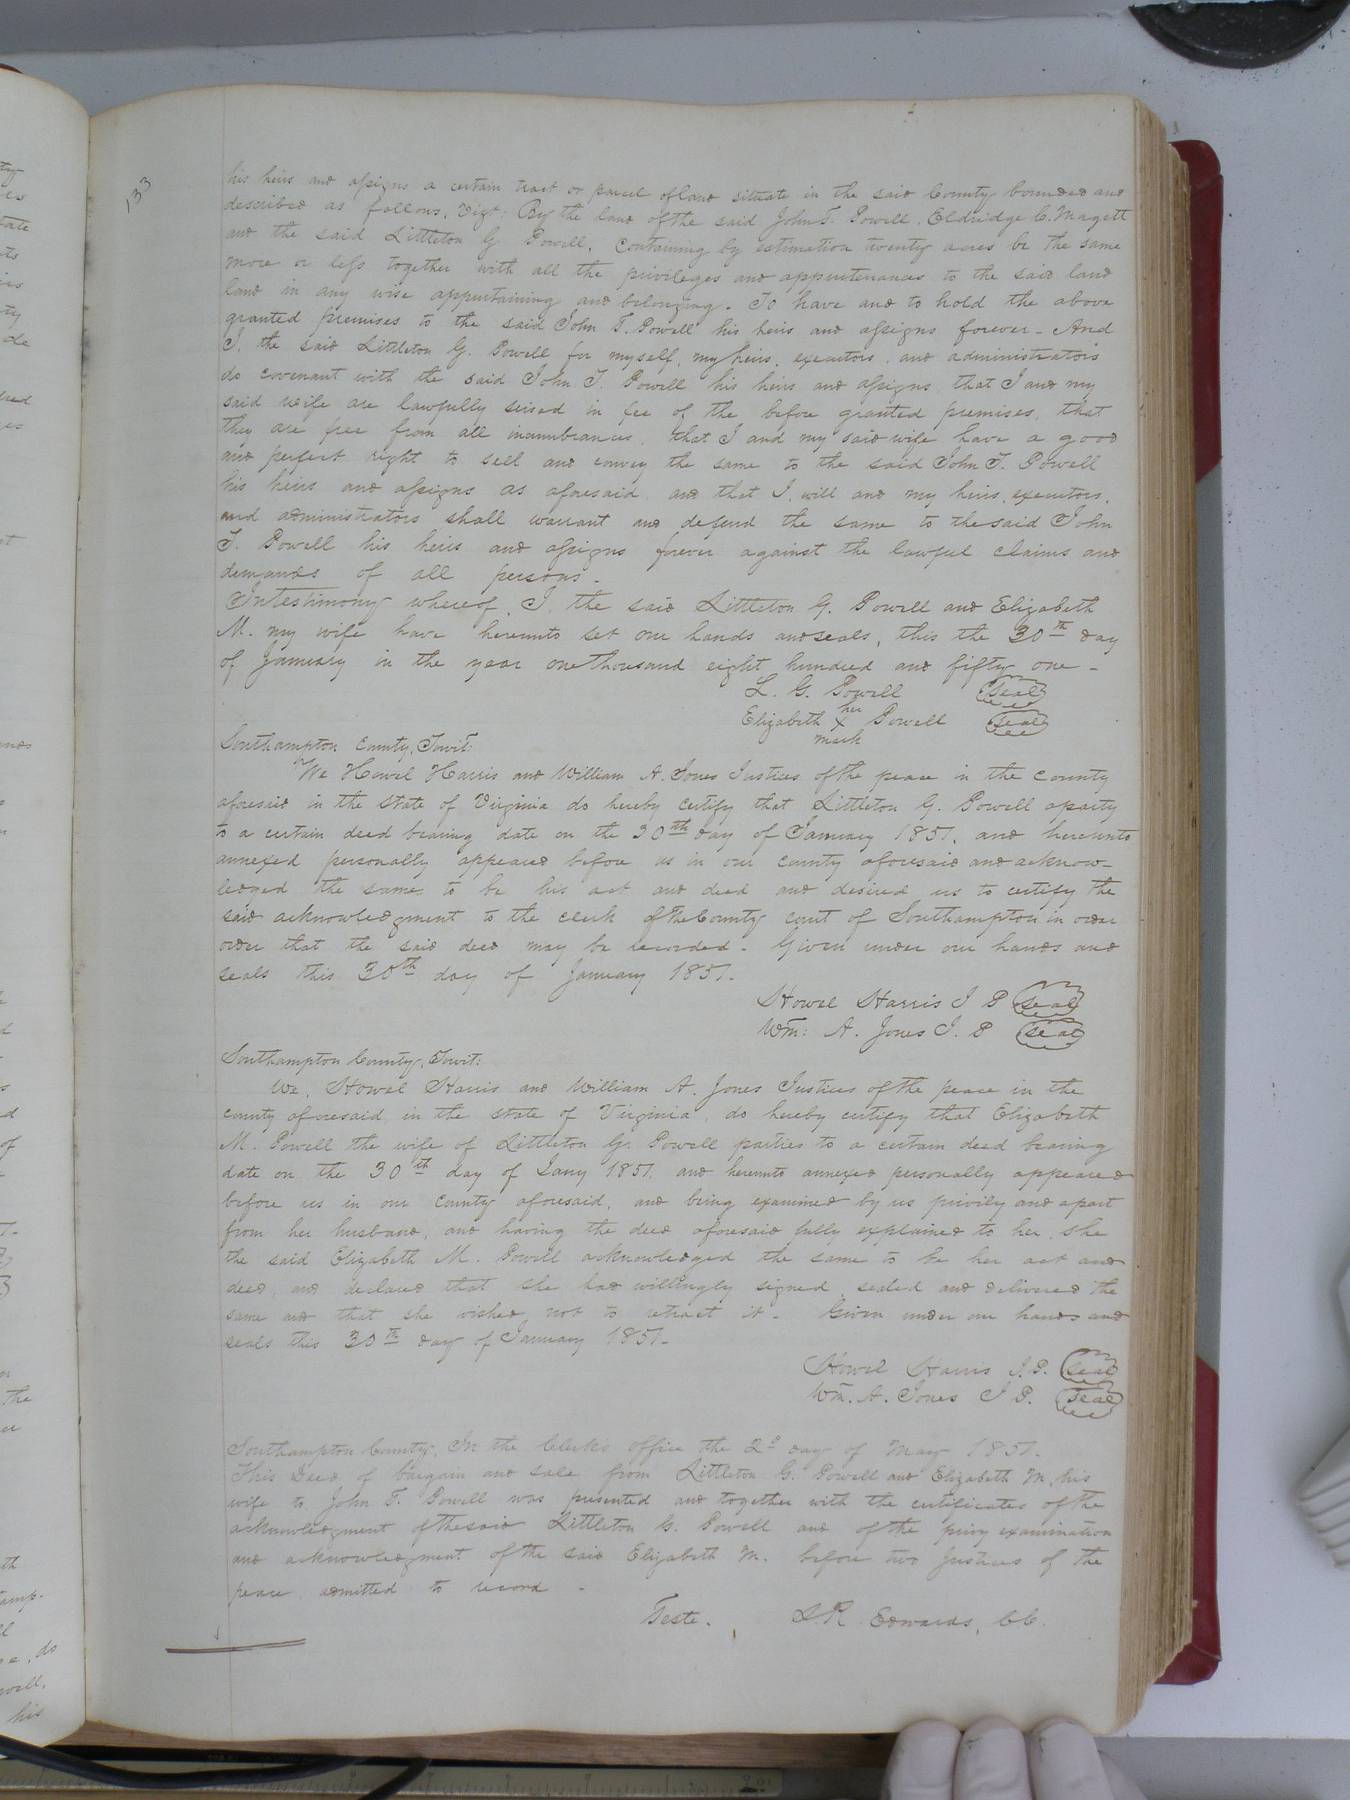 133
his heirs and assigns a certain tract or parcel of land situate in the said County bounded and
described as follows, Vizt: By the land of the said John T. Powell, Eldridge C. Magett
and the said Littleton G. Powell, containing by estimation twenty acres be the same
more or less together with all the privileges and appurtenances to the said land
land in any wise appurtaining and belonging. To have and to hold the above
granted premises to the said John T. Powell his heirs and assigns forever - And
I, the said Littleton G. Powell for myself, my heirs, executors, and administrators
do covenant with the said John T. Powell his heirs and assigns, that I and my
said wife are lawfully seised in fee of the before granted premises, that
they are free from all incumbrances, that I and my said wife have a good
and perfect right to sell and convey the same to the said John T. Powell
his heirs and assigns as aforesaid, and that I, will and my heirs, executors,
and administrators shall warrant and defend the same to the said John
T. Powell his heirs and assigns forever against the lawful claims and
demands of all persons -
In testimony whereof, I, the said Littleton G. Powell and Elizabeth
M. my wife have hereunto set our hands and seals, this the 30th day
of January in the year one thousand eight hundred and fifty one -
L. G. Powell Seal
her
Elizabeth X Powell Seal
mark
Southampton County, Towit:
We Howel Harris and William A. Jones Justices of the peace in the county
aforesaid in the state of Virginia do hereby certify that Littleton G. Powell a party
to a certain deed bearing date on the 30th day of January 1851, and hereunto
annexed personally appeared before us in our county aforesaid and acknow-
ledged the same to be his act and deed and desired us to certify the
said acknowledgment to the clerk of the County court of Southampton in order
order that the said deed may be recorded - Given under our hands and
seals this 30th day of January 1851.
Howel Harris J P Seal
Wm: A. Jones J. P Seal
Southampton County, Towit:
We, Howel Harris and William A. Jones Justices of the peace in the
county aforesaid in the state of Virginia, do hereby certify that Elizabeth
M. Powell the wife of Littleton G. Powell parties to a certain deed bearing
date on the 30th day of Jany 1851, and hereunto annexed personally appeared
before us in our county aforesaid, and being examined by us privily and apart
from her husband, and having the deed aforesaid fully explained to her, she
the said Elizabeth M. Powell acknowledged the same to be her act and
deed, and declared that she had willingly signed, sealed and delivered the
same and that she wished not to retract it - Given under our hands and
seals this 30th day of January 1851 -
Howel Harris J.P. Seal
Wm. A. Jones J P. Seal
Southampton County, In the Clerk's office the 2d day of May 1851.
This Deed of bargain and sale from Littleton G. Powell and Elizabeth M, his
wife to John T. Powell was presented and together with the certificates of the
acknowledgment of the said Littleton G. Powell and of the privy examination
and acknowledgment of the said Elizabeth M. before two Justices of the
peace admitted to record -
Teste. L R Edwards, CC.